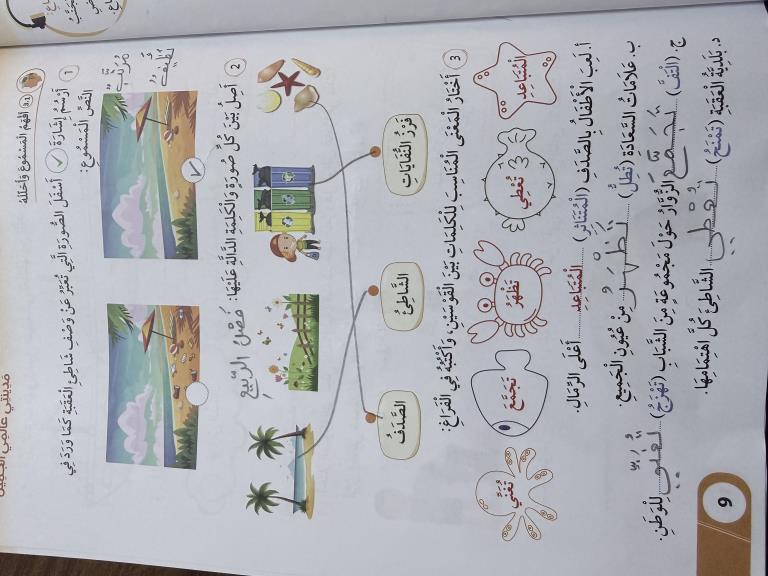 أَفْهَمُ الْمَسْمُوعَ وَأُحَلِّلُهُ
١ أَرْسُمُ إِشَارَةَ ✓ أَسْفَلَ الصُّورَةِ الَّتِي تُعَبِّرُ عَنْ وَصْفِ شَاطِئِ الْعَقَبَةِ كَمَا وَرَدَ فِي
النَّصِّ الْمَسْمُوعِ:
مُرَتَّبٌ
نَظِيفٌ
٢ أَصِلُ بَيْنَ كُلِّ صُورَةٍ وَالْكَلِمَةِ الدَّالَّةِ عَلَيْهَا:
فَصْلُ الرَّبِيعِ
فَرْزُ النُّفَايَاتِ
الشَّاطِئُ
الصَّدَفُ
٣ أَخْتَارُ الْمَعْنَى الْمُنَاسِبَ لِلْكَلِمَاتِ بَيْنَ الْقَوْسَيْنِ، وَأَكْتُبُهُ فِي الْفَرَاغِ:
الْمُتَبَاعِدِ
تُعْطِي
تَظْهَرُ
تَجَمَّعَ
تُغَنِّي
أ. لَعِبَ الْأَطْفَالُ بِالصَّدَفِ (الْمُتَنَاثِرِ) الْمُتَبَاعِدِ أَعْلَى الرِّمَالِ.
ب. عَلَامَاتُ السَّعَادَةِ (تُطِلُّ) تَظْهَرُ مِنْ عُيُونِ الْجَمِيعِ.
ج. (الْتَفَّ) تَجَمَّعَ الزُّوَّارُ حَوْلَ مَجْمُوعَةٍ مِنَ الشَّبَابِ (تَهْزِجُ) تُغَنِّي لِلْوَطَنِ.
د. بَلَدِيَّةُ الْعَقَبَةِ (تَمْنَحُ) تُعْطِي الشَّاطِئَ كُلَّ اهْتِمَامِهَا.
9